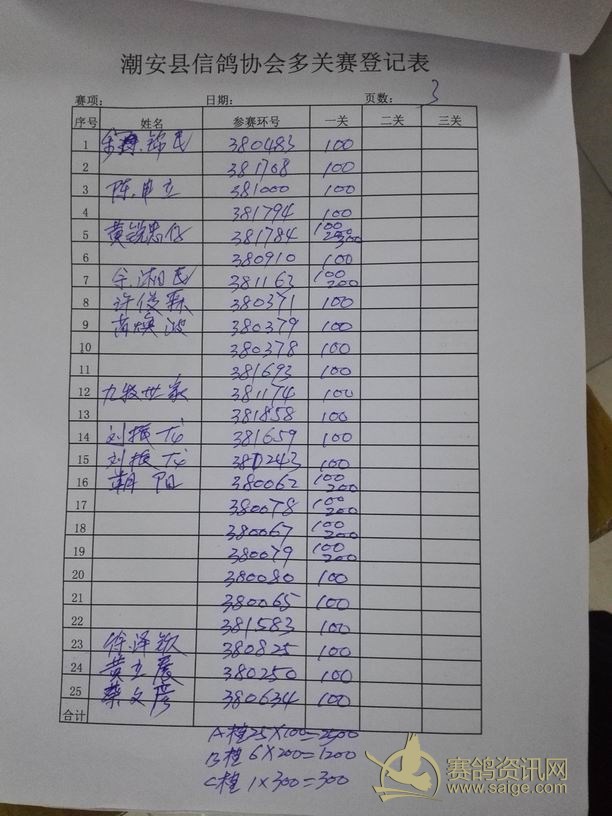 潮安县信鸽协会多关赛登记表
赛项： 日期： 页数： 3
序号 姓名 参赛环号 一关 二关 三关
1 锦民 380483 100
2 381768 100
3 陈.申立 381000 100
4 381794 100
5 黄锐忠仔 381784 100 200 300
6 380910 100
7 湘民 381163 100 200
8 许俊 380371 100
9 黄焕波 380379 100
10 380378 100
11 381693 100
12 九牧世家 381174 100
13 381858 100
14 刘振龙 381659 100
15 刘振龙 380243 100
16 朝阳 380062 100 200
17 380078 100 200
18 380067 100 200
19 380079 100 200
20 380080 100
21 380065 100
22 381583 100
23 徐泽钦 380825 100
24 黄立展 380250 100
25 蔡文彦 380634 100
合计
A档25×100=2500
B档 6×200=1200
C档 1×300=300
赛鸽资讯网
www.saige.com